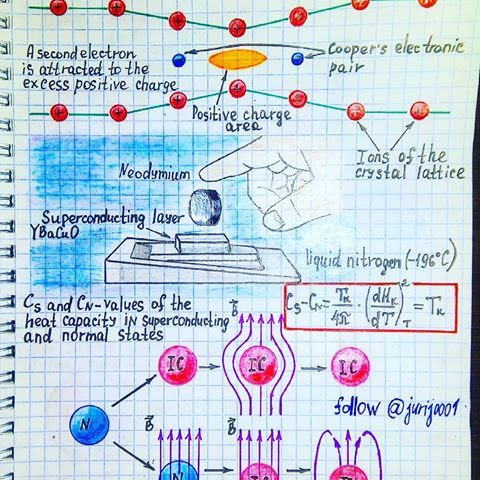 + + + + + + +
A second electron
is attracted to the
excess positive charge
Cooper's electronic
pair
Positive charge
area
+ + + + + +
Ions of the
crystal lattice
Neodymium
Superconducting layer
YBaCuO
liquid nitrogen (-196°C)
Cs and CN-values of the
heat capacity in superconducting
and normal states
Cs-CN= Tk/4π · (dHk/dT)²T = Tk
B
IC IC IC
follow @jurij0001
N
B B
N IC